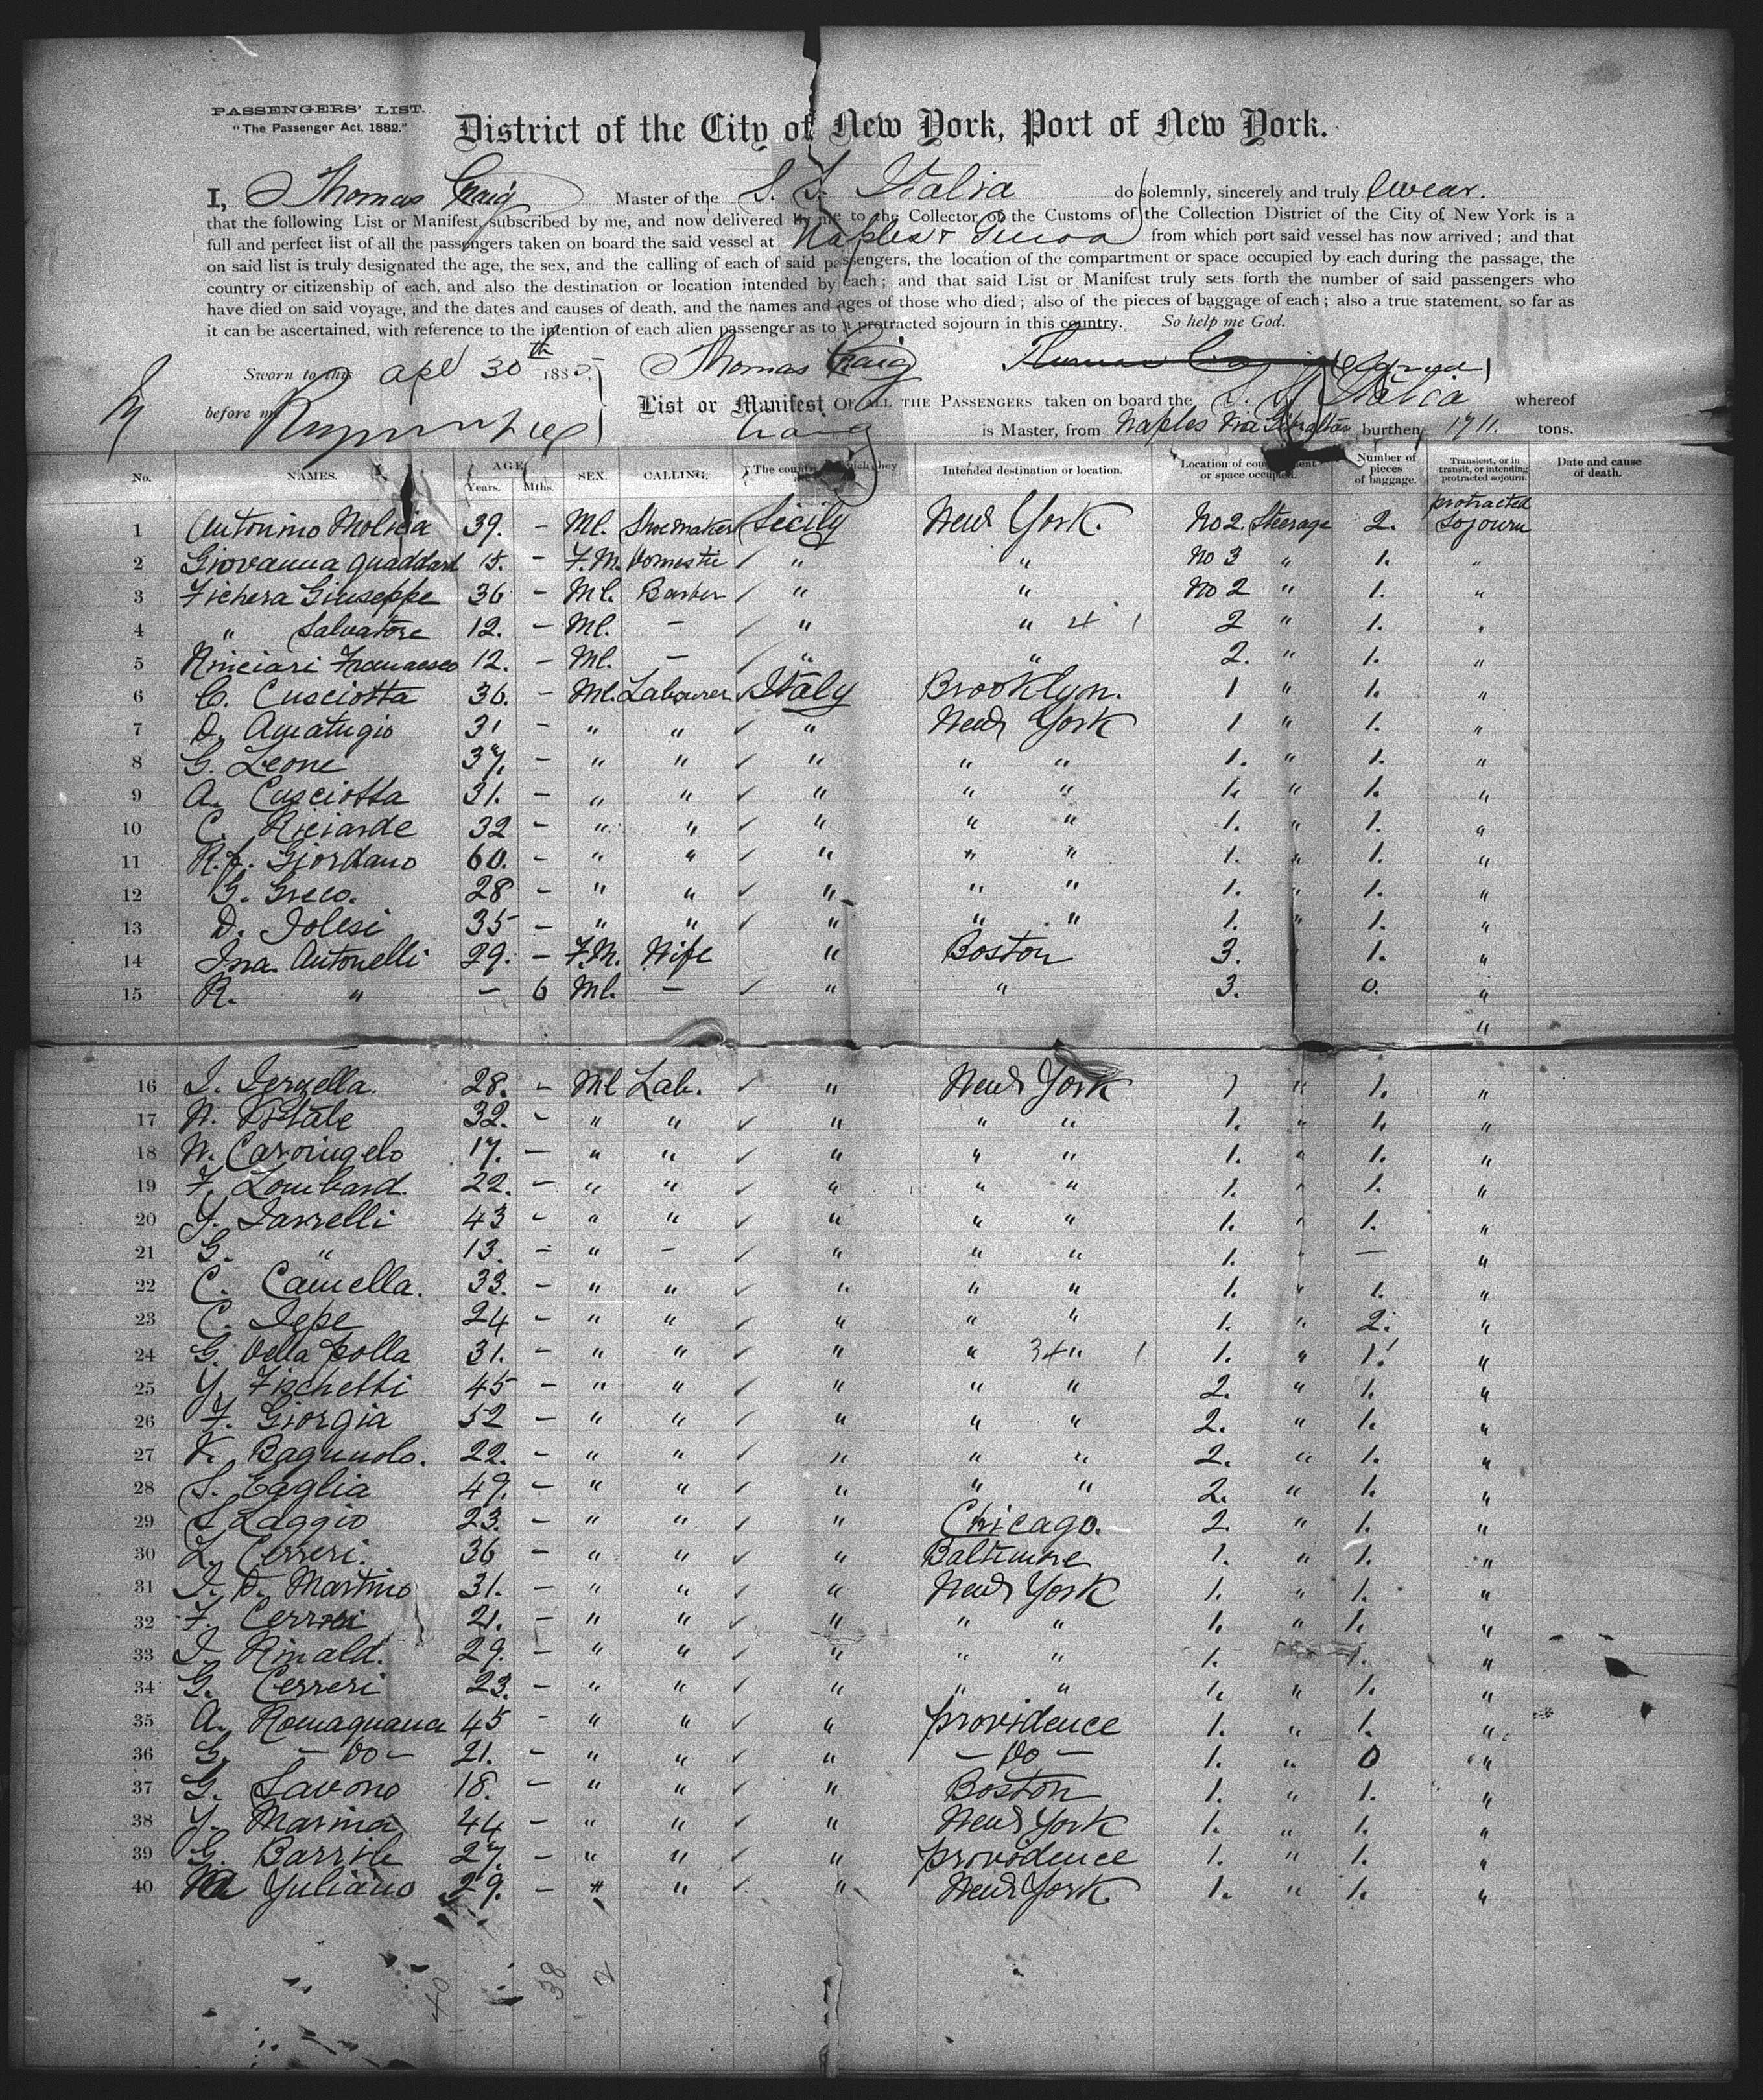 PASSENGERS' LIST.
"The Passenger Act, 1882."
District of the City of New York, Port of New York.
I, Thomas Craig Master of the S. S. Italia do solemnly, sincerely and truly swear.
that the following List or Manifest, subscribed by me, and now delivered by me to the Collector of the Customs of the Collection District of the City of New York is a
full and perfect list of all the passengers taken on board the said vessel at Naples & Genoa from which port said vessel has now arrived; and that
on said list is truly designated the age, the sex, and the calling of each of said passengers, the location of the compartment or space occupied by each during the passage, the
country or citizenship of each, and also the destination or location intended by each; and that said List or Manifest truly sets forth the number of said passengers who
have died on said voyage, and the dates and causes of death, and the names and ages of those who died; also of the pieces of baggage of each; also a true statement, so far as
it can be ascertained, with reference to the intention of each alien passenger as to a protracted sojourn in this country. So help me God.
Sworn to this Apl 30th 1885. Thomas Craig (Signed)
before me List or Manifest OF ALL THE PASSENGERS taken on board the S. S. Italia whereof
Craig is Master, from Naples via Gibraltar burthen 1911. tons.
No. NAMES. AGE Years. Mths. SEX. CALLING. The country Intended destination or location. Location of compartment or space occupied. Number of pieces of baggage. Transient, or in transit, or intending protracted sojourn. Date and cause of death.
1 Antonino Molica 39. – Ml. Shoemaker Sicily New York. No 2. Steerage 2. protracted Sojourn
2 Giovanna 15. – F.M. Domestic ✓ " " No 3 " 1. "
3 Fichera Giuseppe 36 – Ml. Barber ✓ " " No 2 " 1. "
4 " Salvatore 12. – Ml. – ✓ " " 4 2 " 1. "
5 Francesco 12. – Ml. – ✓ " " 2. " 1. "
6 C. Cusciotta 36. – Ml. Labourer ✓ Italy Brooklyn. 1 " 1. "
7 D. Amatugio 31 – " " ✓ " New York 1 " 1. "
8 G. Leone 37. – " " ✓ " " " 1. " 1. "
9 A. Cusciotta 31. – " " ✓ " " " 1. " 1. "
10 C. Riciarde 32 – " " ✓ " " " 1. " 1. "
11 Giordano 60. – " " ✓ " " " 1. " 1. "
12 G. Greco. 28 – " " ✓ " " " 1. " 1. "
13 D. Iolesi 35 – " " ✓ " " " 1. " 1. "
14 Antonelli 29. – F.M. Wife " Boston 3. " 1. "
15 R. " – 6 Ml. – ✓ " " 3. " 0. "
"
16 28. – Ml Lab. ✓ " New York 1 " 1. "
17 N. Vitale 32. – " " ✓ " " " 1. " 1. "
18 N. Caroingelo 17. – " " ✓ " " " 1. " 1. "
19 F. Lombard. 22. – " " ✓ " " " 1. " 1. "
20 Y. Iarrelli 43 – " " ✓ " " " 1. " 1. "
21 G. " 13. – " – ✓ " " " 1. " – "
22 C. Camella. 33. – " " ✓ " " " 1. " 1. "
23 C. Iepe 24 – " " ✓ " " " 1. " 2. "
24 G. Della polla 31. – " " ✓ " " 34 " 1. " 1. "
25 Y. Fischetti 45 – " " ✓ " " " 2. " 1. "
26 F. Giorgia 52 – " " ✓ " " " 2. " 1. "
27 V. Bagnuolo. 22. – " " ✓ " " " 2. " 1. "
28 S. Eaglia 49. – " " ✓ " " " 2. " 1. "
29 S Laggio 23. – " " ✓ " Chicago. 2. " 1. "
30 L. Cerreri. 36 – " " ✓ " Baltimore 1. " 1. "
31 I. D. Martino 31. – " " ✓ " New York 1. " 1. "
32 F. Cerreri 21. – " " ✓ " " " 1. " 1. "
33 I. Rinald. 29. – " " ✓ " " " 1. 1. "
34 G. Cerreri 23. – " " ✓ " " " 1. " 1. "
35 A. Romagnana 45 – " " ✓ " Providence 1. " 1. "
36 G. – Do – 21. – " " ✓ " – Do – 1. " 0 "
37 G. Savono 18. – " " ✓ " Boston 1. " 1. "
38 Y. Marina 44 – " " ✓ " New York 1. " 1. "
39 G. Barrile 27. – " " ✓ " Providence 1. " 1. "
40 Yuliano 29. – " " ✓ " New York. 1. " 1. "
40 38 2